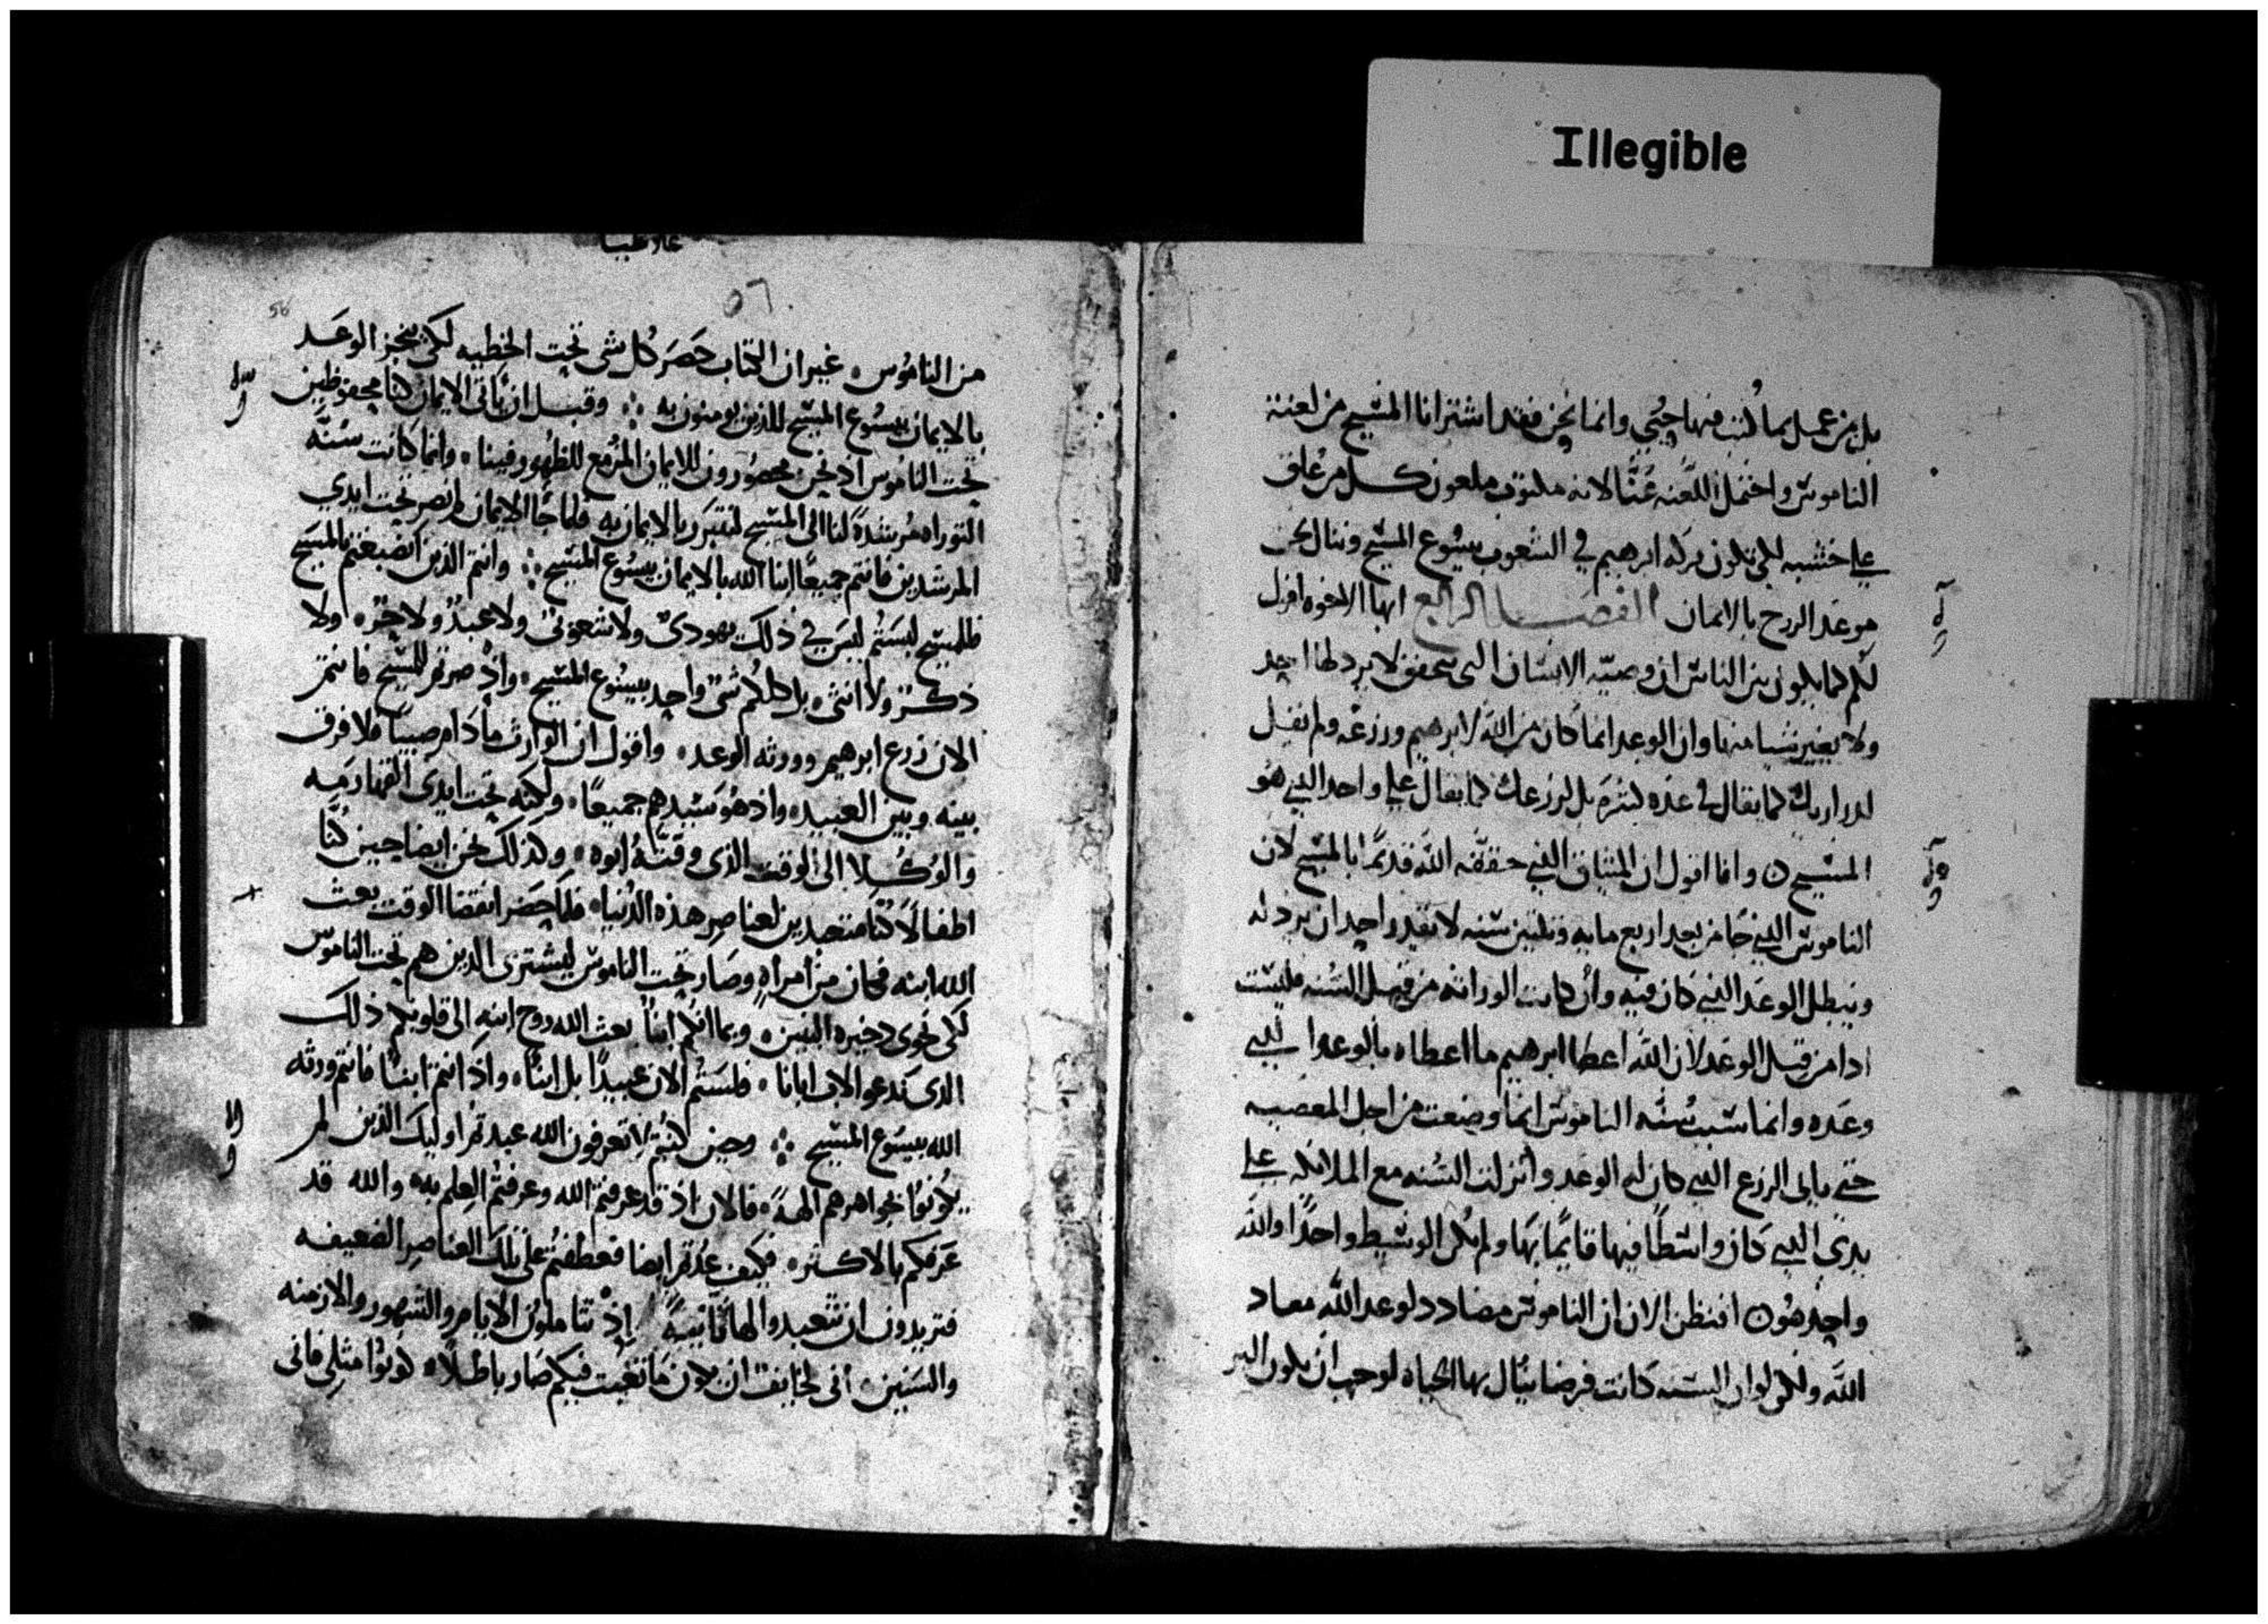 Illegible
بل من عمل بما كتب فيها يحيى وانما نحن فقد اشترانا المسيح من لعنة
الناموس واحتمل اللعنه عنا لانه مكتوب ملعون كل من علق
على خشبه لكى تكون بركه ابرهيم في الشعوب بيسوع المسيح وننال نحن
موعد الروح بالايمان الفصل الرابع ايها الاخوه اقول
لكم كما يكون بين الناس ان وصيه الانسان التى تحقق لا يردلها احد
ولا يغير شيا منها وان الوعد انما كان من الله لابرهيم وزرعه ولم يقل
لزراريك كما يقال في عده كثره بل لزرعك كما يقال على واحد الذي هو
المسيح ٥ وانا اقول ان الميثاق الذي حققه الله قديما بالمسيح لان
الناموس الذي جا من بعد اربع مايه وثلثين سنه لا يقدر احد ان يردله
ويبطل الوعد الذي كان فيه وان كانت الوراثه من قبل السنه فليست
اذا من قبل الوعد لان الله اعطا ابرهيم ما اعطاه بالوعد الذي
وعده وانما سبب سنه الناموس انما وضعت من اجل المعصيه
حتى ياتى الزرع الذي كان له الوعد وانزلت السنه مع الملائكه على
يدى الذي كان واسطا فيها قايما بها ولم يكن الوسيط واحدا والله
واحد هو ٥ افنظن الان ان الناموس مضادد لوعد الله معاد
الله ولكن لو ان السنه كانت فرضا ينال بها الحياه لوجب ان يكون البر
غلاطيا
٥٦
56
من الناموس غير ان الكتاب حصر كل شى تحت الخطيه لكى ينجز الوعد
بالايمان بيسوع المسيح للذين يومنون به وقبل ان ياتى الايمان كنا محفوظين
تحت الناموس اذ نحن محصورون للايمان المزمع للظهور فينا وانما كانت سنه
التوراه مرشدة لنا الى المسيح لنتبرر بالايمان به فلما جا الايمان لم نصر تحت ايدى
المرشدين فانتم جميعا ابنا الله بالايمان بيسوع المسيح وانتم الذين انصبغتم بالمسيح
فللمسيح لبستم ليس في ذلك يهودى ولا شعوبى ولا عبد ولا حر ولا
ذكر ولا انثى بل كلكم شى واحد بيسوع المسيح واذ صرتم للمسيح فانتم
الان زرع ابرهيم وورثه الوعد واقول ان الوارث ما دام صبيا فلا فرق
بينه وبين العبيد واذ هو سيدهم جميعا ولكنه تحت ايدى القهارمه
والوكلا الى الوقت الذى وقته ابوه وكذلك نحن ايضا حين كنا
اطفالا كنا متعبدين لعناصر هذه الدنيا فلما حضر انقضا الوقت بعث
الله ابنه فكان من امراه وصار تحت الناموس ليشترى الذين هم تحت الناموس
لكى نحوى ذخيره البنين وبما انكم ابنا بعث الله روح ابنه الى قلوبكم ذلك
الذى ندعو الاب ابانا فلستم الان عبيدا بل ابنا واذ انتم ابنا فانتم ورثه
الله بيسوع المسيح وحين كنتم لا تعرفون الله عبدتم اوليك الذين لم
يكونوا بجواهرهم الهة فالان اذ قد عرفتم الله وعرفتم العلم به والله قد
عرفكم بالاكثر فكيف عدتم ايضا فعطفتم على تلك العناصر الضعيفه
فتريدون ان تتعبدوا لها ثانية اذ تتاملون الايام والشهور والازمنه
والسنين انى لخايف ان يكون ما تعبت فيكم صار باطلا كونوا مثلى فانى